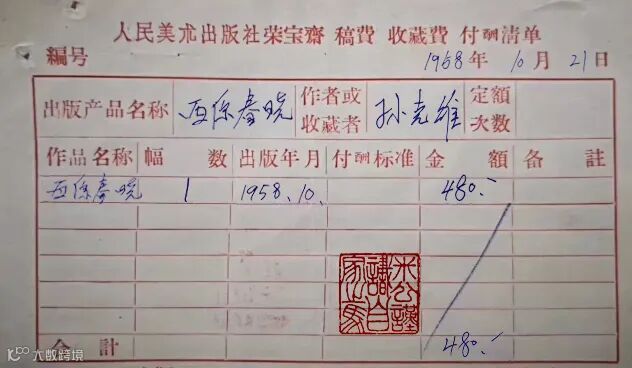 人民美朮出版社荣宝齋 稿費 收藏費 付酬清单
編号 1958年 10月 21日
出版产品名称 西保春晓 作者或收藏者 孙克維 定額次数
作品名称 幅数 出版年月 付酬标准 金額 备註
春晓 1 1958.10. 480.-
合計 480.-
大数跨境